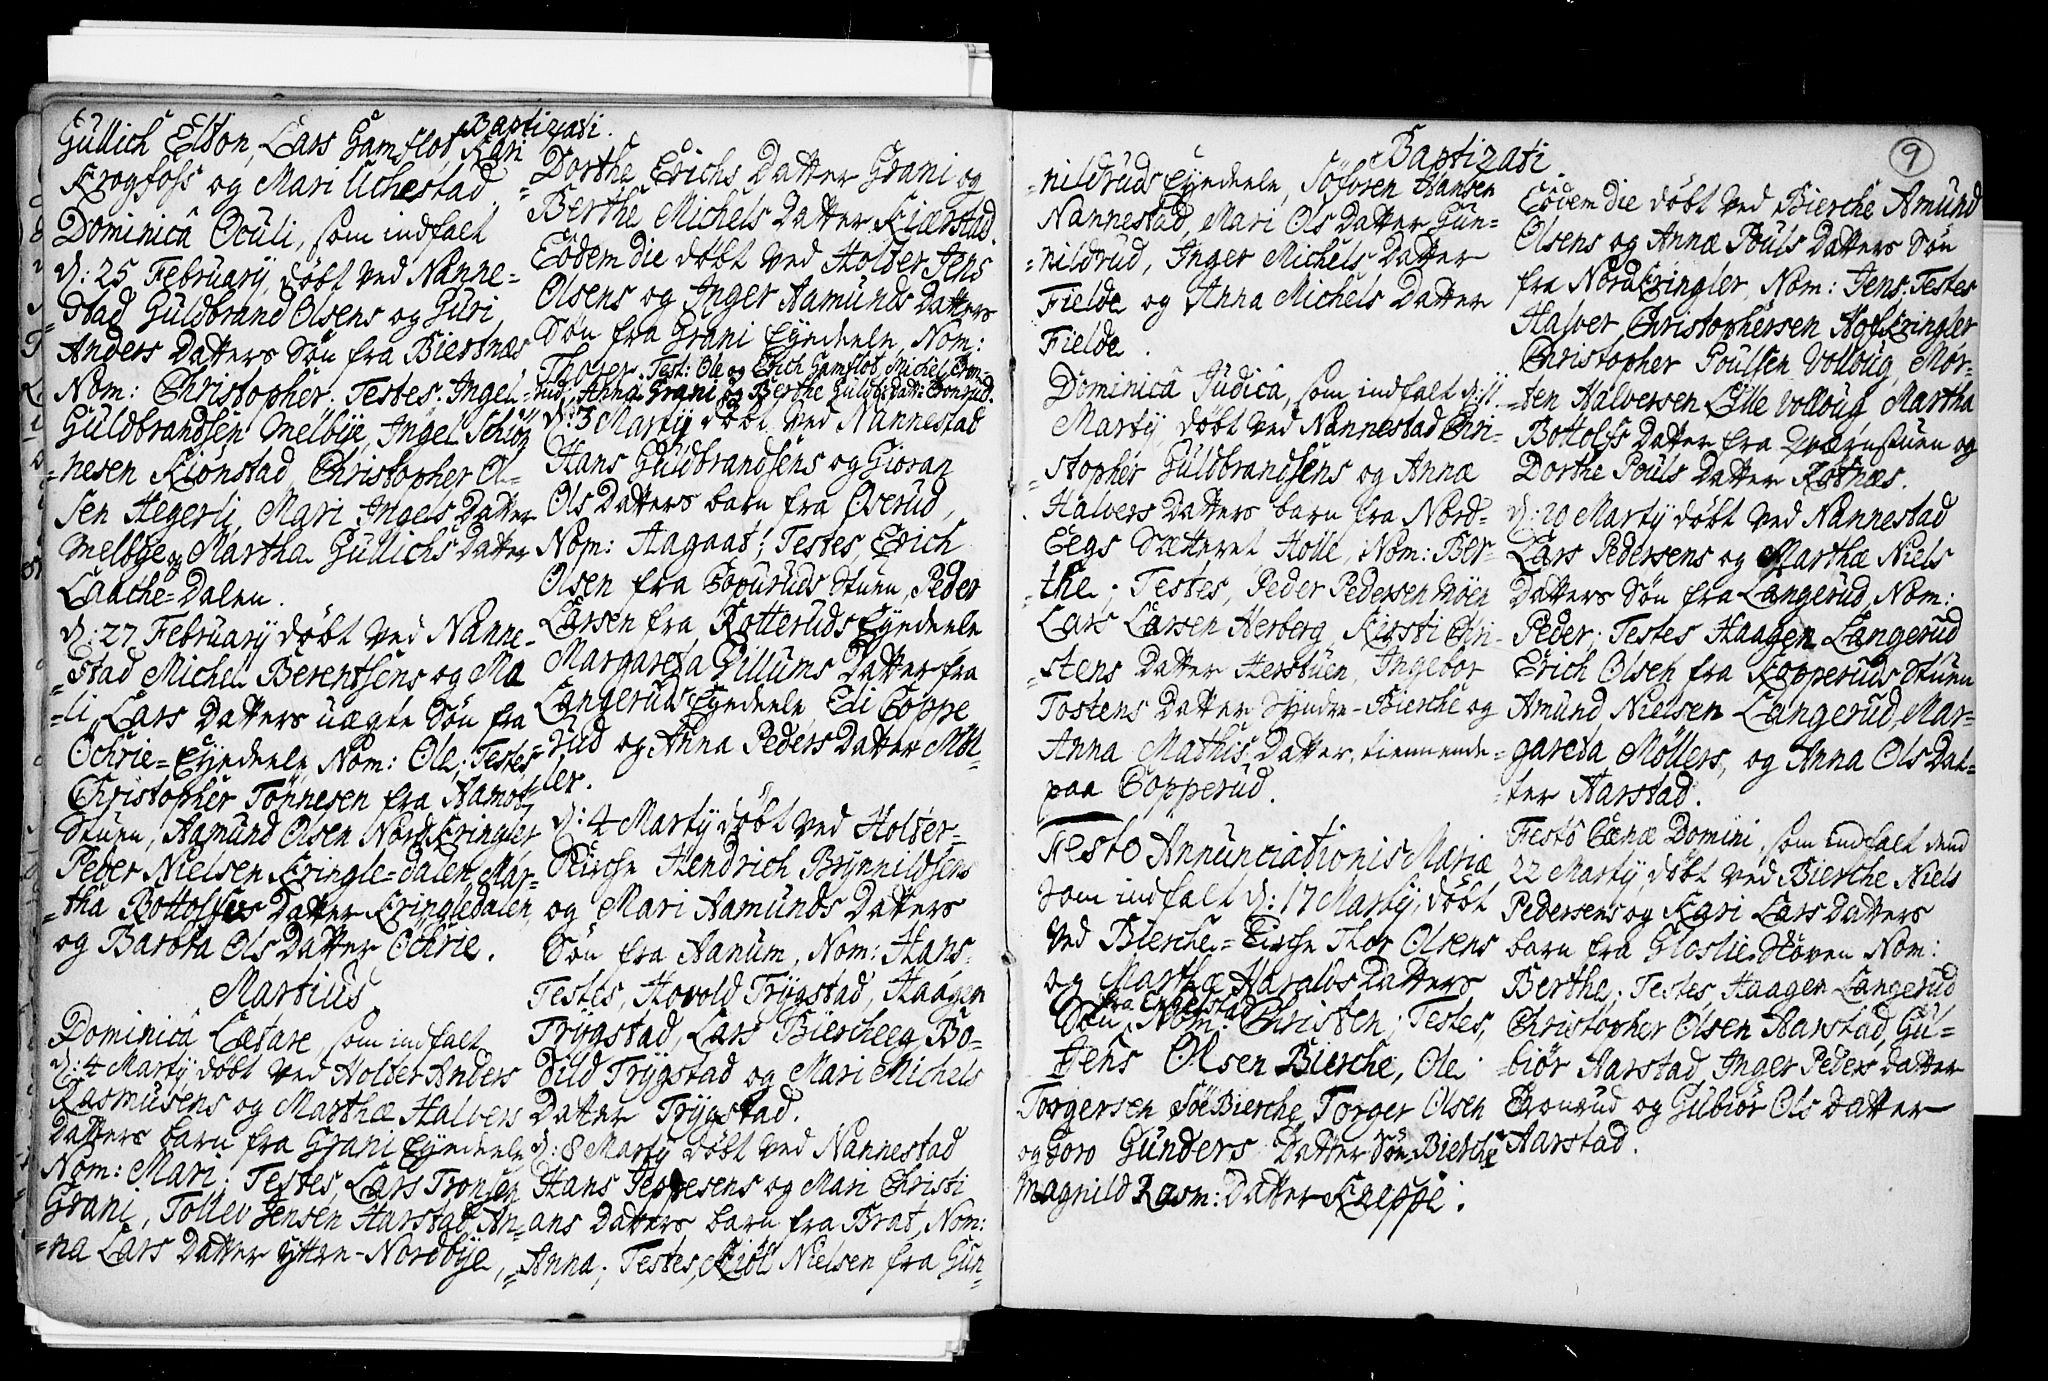 Baptizati.
Gullich Elton, Lars Gamflot, Kari
Krogfoss og Mari Uchestad.
Dominicâ Oculi, som indfalt
d: 25 February, döbt ved Nanne=
=stad Guldbrand Olsens og Guri
Anders Datters Sön fra Biertnæs
Nom: Christopher. Testes. Ingel
Guldbrandsen Melbÿe, Ingel Schiön
=nesen Kiönstad, Christopher Ol=
sen Hegerli, Mari Ingels Datter
Melbÿe og Martha Gullichs Datter
Laache=Dalen.
d: 27 February döbt ved Nanne=
=stad Michel Berentsens og Ma
=li Lars Datters uægte Sön fra
Ochrie=Eÿedeele, Nom: Ole; Testes
Christopher Tönnesen fra Aamot=
Stuen, Aamund Olsen NordKringler
Peder Nielsen Kringle=dalen, Mar=
=tha Bottolfs Datter Kringledalen,
og Barbra Ols Datter Ochrie.
Martius
Dominicâ Lætare, som indfalt
d: 4 Marty döbt ved Holter Anders
Rasmusens og Marthæ Halvers
Datters barn fra Grani Eÿedeele
Nom: Mari; Testes, Lars Tronsen
Grani, Tollev Jensen Harstad, An=
=na Lars Datter ÿttre-Nordbÿe,
=Dorthe Erichs Datter Grani og
Berthe Michels Datter Kiærstad.
Eodem die döbt ved Holter Jens
Olsens og Inger Aamunds Datters
Sön fra Grani Eÿedeele, Nom:
Thorer. Test: Ole og Erich Gamflot, Michel Tron=
rud, Anna Grani og Berthe Guldb: datt: Tronrud.
d: 3 Marty döbt ved Nannestad
Hans Guldbrandsens og Gioran
Ols Datters barn fra Overud,
Nom: Aagaat; Testes, Erich
Olsen fra Copuruds Stuen, Peder
Larsen fra Rotteruds Eÿedeele
Margareta Gillums Datter fra
Langeruds Eÿedeele, Eli Coppe
=rud og Anna Peders Datter Möl=
ler.
d: 4 Marty döbt ved Holter=
Kirche Hendrich Brynnildsens
og Mari Aamunds Datters
Sön fra Aanum, Nom: Hans.
Testes, Hovold Trÿgstad, Haagen
Trÿgstad, Lars Biercheeg, Bo=
dild Trÿgstad og Mari Michels
Datter Trÿgstad.
d: 8 Marty döbt ved Nannestad
Hans Jeppesens og Mari Christi
ans Datters barn fra Brat, Nom:
=Anna; Testes, Kiöl Nielsen fra Gun=
Baptizati.
9
=nildruds Eÿedeele, Söfören Hansen
Nannestad, Mari Ols Datter Gun=
=nildrud, Inger Michels Datter
Fielde og Anna Michels Datter
Fielde.
Dominicâ Judica, som indfalt d: 11
Marty döbt ved Nannestad Chri=
=stopher Guldbrandsens og Annæ
Halvers Datters barn fra Nord=
Eegs Sætteret, Holle, Nom: Ber=
=the; Testes, Peder Pedersen Möen
Lars Larsen Herberg, Kirsti Chri=
=stens Datter Herstuen, Ingebor
Tostens Datter Syndre-Bierche og
Anna Mathis Datter, tiennende=
paa Copperud.
Festo Annunciationis Mariæ
som indfalt d: 17 Marty, döbt
ved Bierche=Kirche Thor Olsens
og Marthæ Haralds Datters
fra Engelstad
Sön, Nom: Christen; Testes,
Jens Olsen Bierche, Ole
Torgersen SöeBierche, Torger Olsen
og Goro Gunders Datter Sön-Bierche
Magnild Rasm: Datter Kneppe.
Eodem die döbt ved Bierche Amund
Olsens og Annæ Pouls Datters Sön
fra NordKringler, Nom: Jens; Testes
Halver Christophersen NofKringler
Christopher Poulsen Vollbug, Mor=
=ten Halversen Lille Vollbug, Martha
Bottolfs Datter fra Qværnstuen og
Dorthe Pouls Datter Rotnæs.
d: 20 Marty döbt ved Nannestad
Lars Pedersens og Marthæ Niels
Datters Sön fra Langerud, Nom:
Peder; Testes Haagen Langerud
Erich Olsen fra Kopperuds Stuen
Amund Nielsen Langerud, Mar=
gareta Möllers, og Anna Ols Dat=
=ter Aarstad.
Festo Cænæ Domini, som indfalt dend
22 Marty, döbt ved Bierche Niels
Pedersens og Kari Lars Datters
barn fra Gloslie-Skoven Nom:
Berthe; Testes, Haagen Langerud
Christopher Olsen Aarstad, Gul=
=biör Aarstad, Inger Peders Datter
Tronrud og Gubiör Ols Datter
Aarstad.